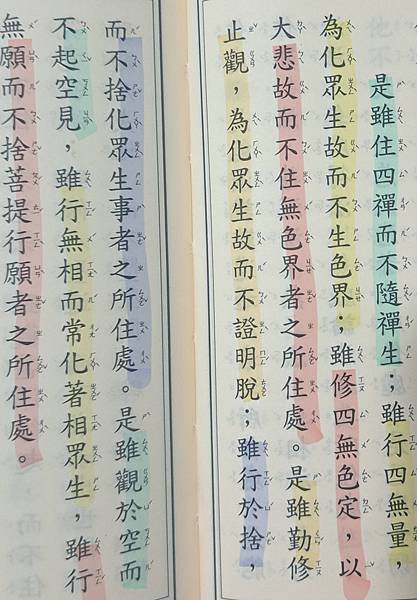 是雖住四禪而不隨禪生；雖行四無量，
為化眾生故而不生色界；雖修四無色定，以
大悲故而不住無色界者之所住處。是雖勤修
止觀，為化眾生故而不證明脫；雖行於捨，
而不捨化眾生事者之所住處。是雖觀於空而
不起空見，雖行無相而常化著相眾生，雖行
無願而不捨菩提行願者之所住處。